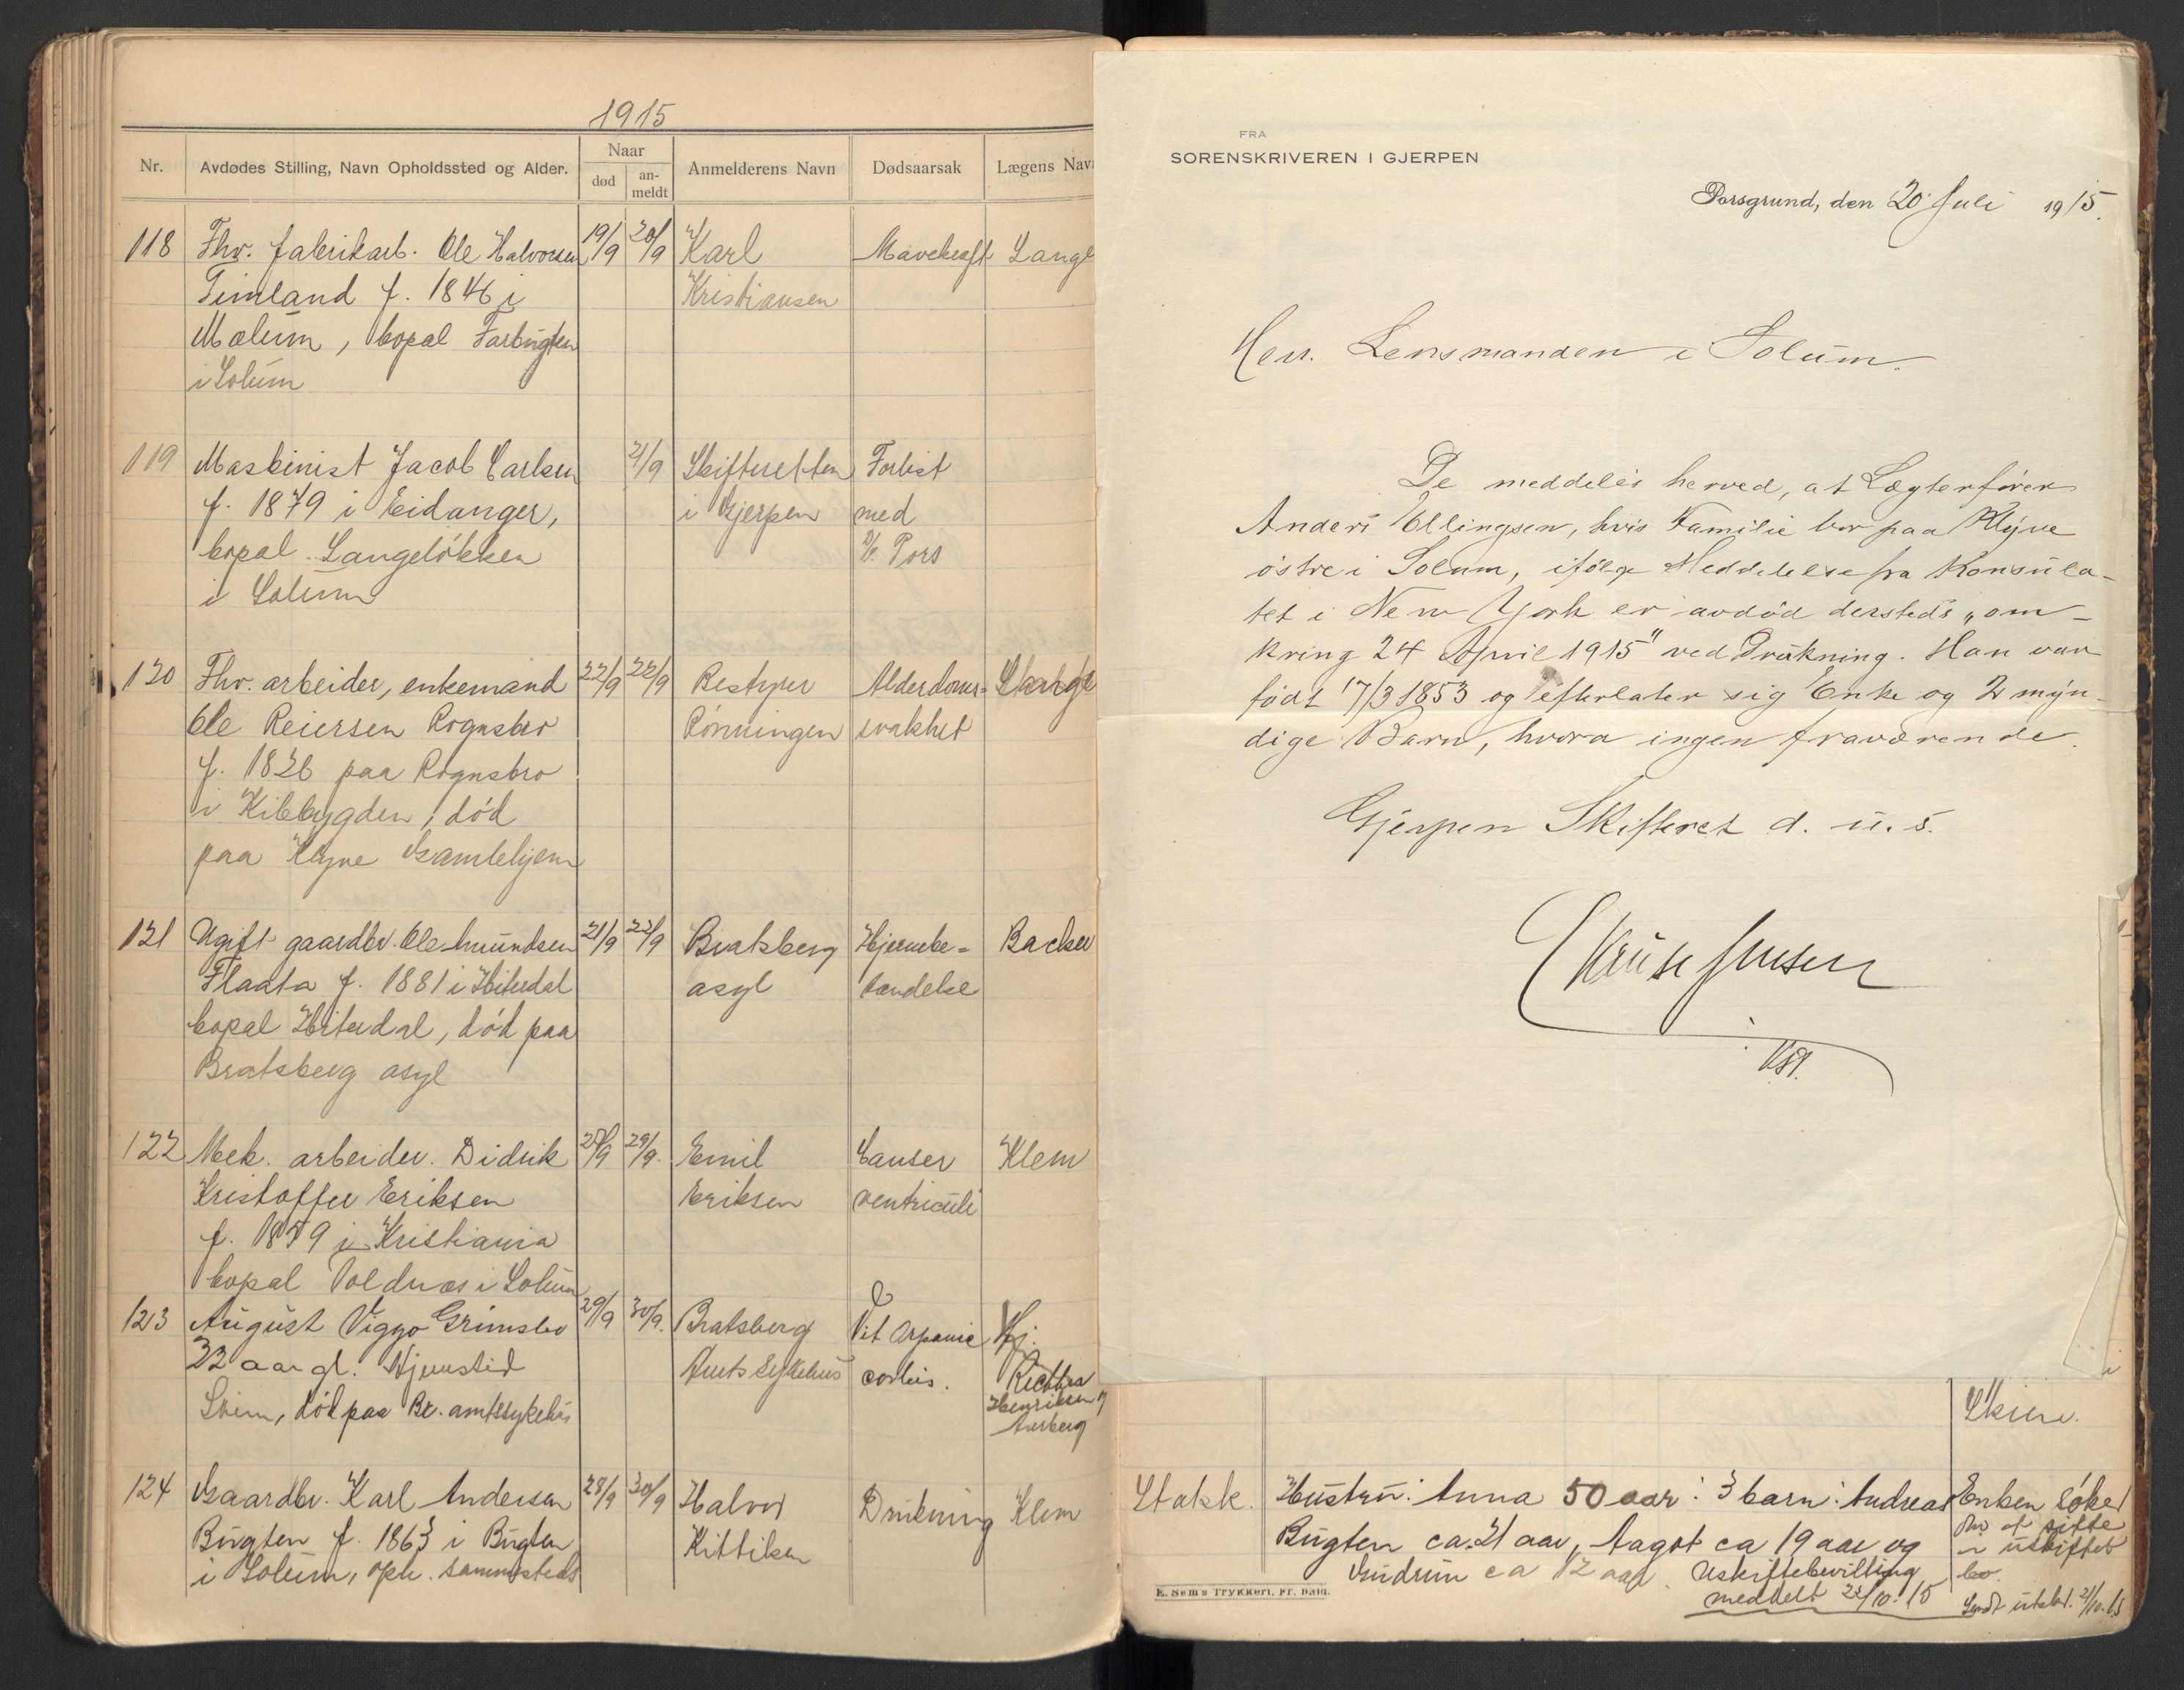 1915
Nr.
Avdødes Stilling, Navn Opholdssted og Alder.
Naar
død
an-
meldt
Anmelderens Navn
Dødsaarsak
Lægens Nav
118 Fhv. fabrikarb. Ole Halvorsen 19/9 20/9 Karl Mavekræft Lange
Timland f. 1846 i Kristiansen
Mælum, bopæl Farbugten
i Solum
119 Maskinist Jacob Carlsen 21/9 Skifteretten Forlist
f. 1879 i Eidanger, i Gjerpen med
bopæl Langeløkken D/S Pors
i Solum
120 Fhv. arbeider, enkemand 22/9 22/9 Bestyrer Alderdoms- Lange
Ole Reiersen Rognsbro Rønningen svakhet
f. 1826 paa Rognsbro
i Kilebygden, død
paa Klyve Gamlehjem
121 Ugift gaardbr. Ole Amundsen 21/9 22/9 Bratsberg Hjernebe- Backer
Flaata f. 1881 i Hiterdal asyl tændelse
bopæl Hiterdal, død paa
Bratsberg asyl
122 Mek. arbeider. Didrik 29/9. Emil Canser Klem
Kristoffer Eriksen Eriksen ventriculi
f. 1879 i Kristiania
bopæl Voldnæs i Solum
123 August Viggo Grimsbo 29/9 30/9. Bratsberg Vit organic Hj.
22 aar gl. Hjemsted Amts Sykehus cordis.
død paa Br. amtssykehus Henriksen
124 Gaardbr. Karl Andersen 28/9 30/9 Halvor Drukning Klem
Bugten f. 1863 i Bugten Kittilsen
i Solum, oph. sammesteds
FRA
SORENSKRIVEREN I GJERPEN
Porsgrund, den 20 Juli 1915.
Herr. Lensmanden i Solum.
De meddeles herved, at Lægterfører
Anders Ellingsen, hvis Familie bor paa Klyve
østre i Solum, ifølge Meddelelse fra Konsula-
tet i New York er avdød dersteds „om-
kring 24 April 1915" ved Drukning. Han var
født 17/3 1853 og efterlater sig Enke og 2 myn-
dige Barn, hvora ingen fraværende.
Gjerpen Skifteret d. u. s.
Kruse Jensen
Kst.
Skien.
Stakk. Hustru: Anna 50 aar: 3 barn: Andreas Enken søker
Bugten ca. 21 aar, Aagot ca 19 aar og om at sitte
Gudrun ca 12 aar. Uskiftebevilling i uskiftet
meddelt 22/10. 15 bo.
Sendt utskr. 21/10. 15
E. Sems Trykkeri, Fr. hald.